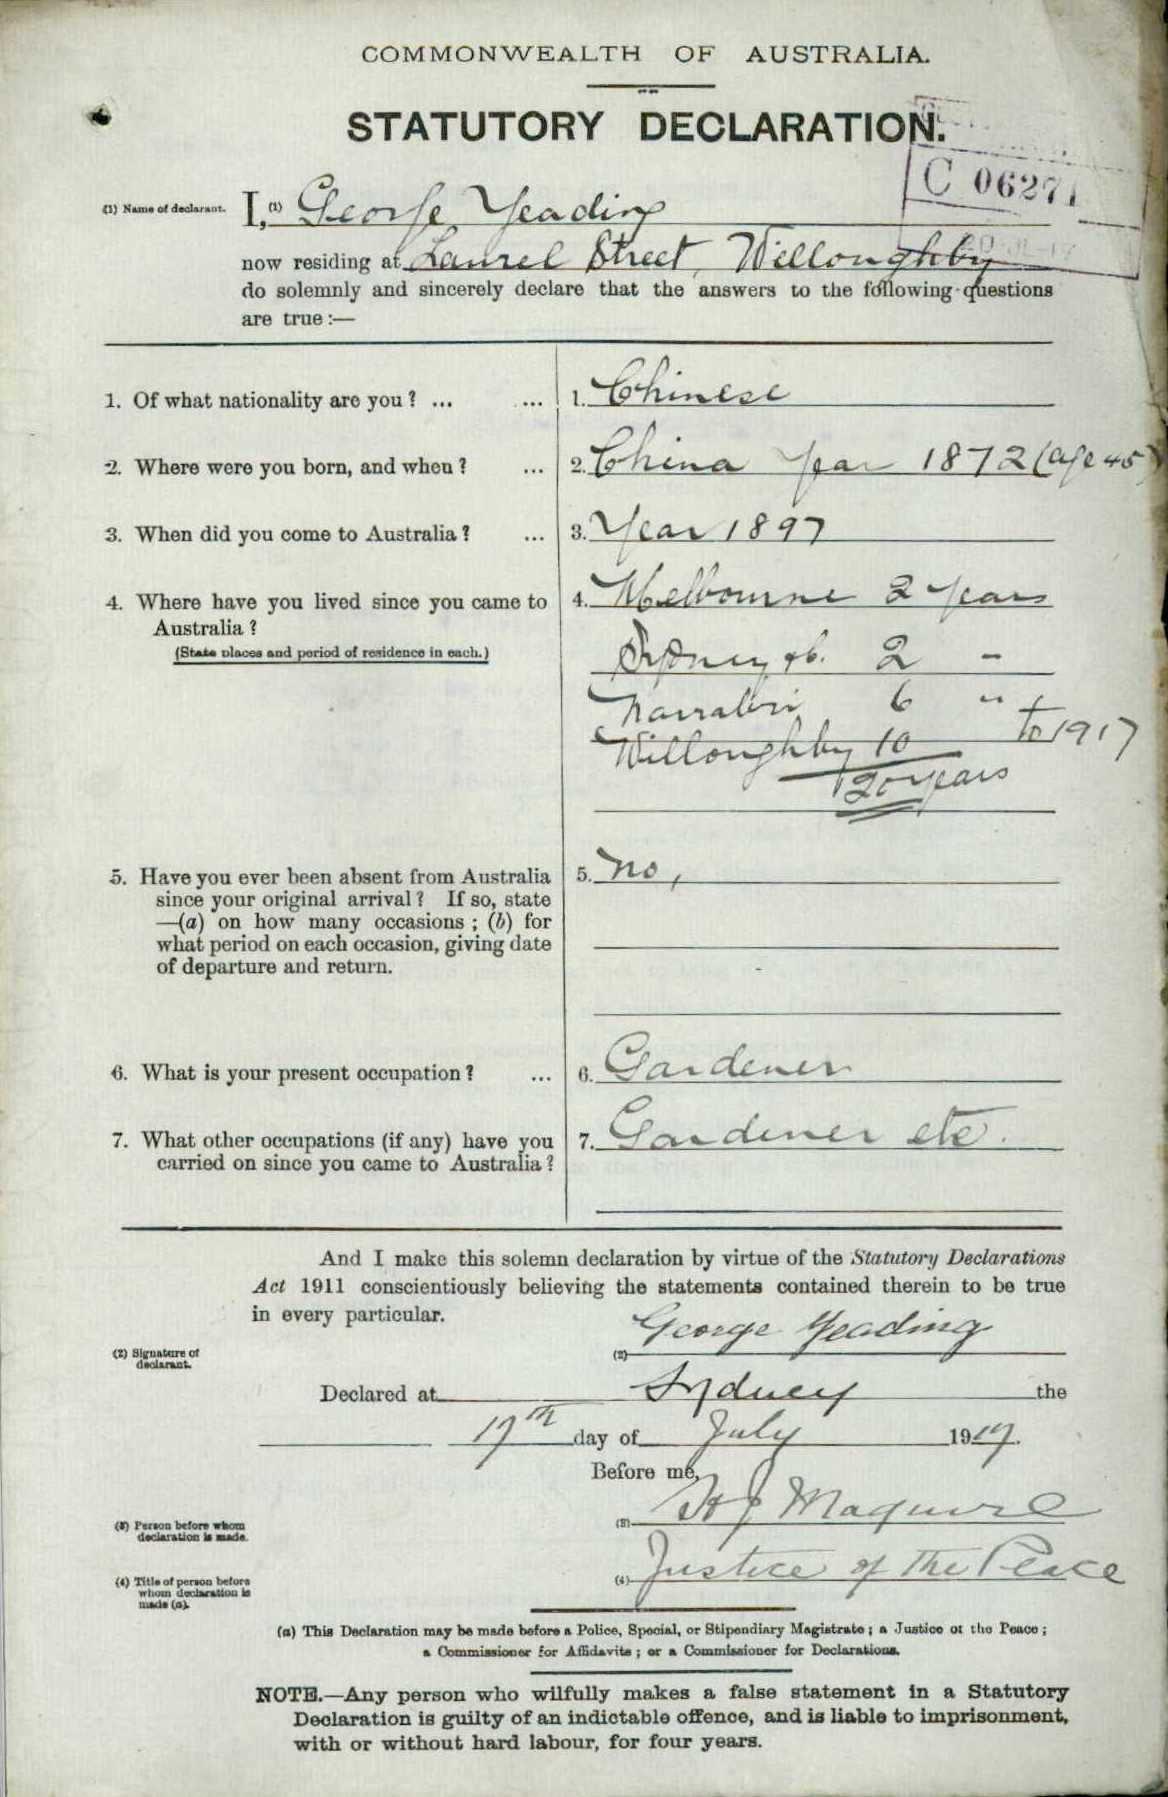 COMMONWEALTH OF AUSTRALIA.
STATUTORY DECLARATION.
C 06271
(1) Name of declarant. I, (1) George Yeading
now residing at Laurel Street, Willoughby
do solemnly and sincerely declare that the answers to the following questions
are true :—
1. Of what nationality are you ? ... ... 1. Chinese
2. Where were you born, and when ? ... 2. China Year 1872 (age 45)
3. When did you come to Australia ? ... 3. Year 1897
4. Where have you lived since you came to 4. Melbourne 2 years
Australia ?
(State places and period of residence in each.) Sydney 2 "
Narrabri 6 "
Willoughby 10 to 1917
20 years
5. Have you ever been absent from Australia 5. No,
since your original arrival ? If so, state
—(a) on how many occasions ; (b) for
what period on each occasion, giving date
of departure and return.
6. What is your present occupation ? ... 6. Gardener
7. What other occupations (if any) have you 7. Gardener etc.
carried on since you came to Australia ?
And I make this solemn declaration by virtue of the Statutory Declarations
Act 1911 conscientiously believing the statements contained therein to be true
in every particular.
(2) Signature of (2) George Yeading
declarant.
Declared at Sydney the
17th day of July 1917.
Before me,
(3) Person before whom (3) H J Maguire
declaration is made.
(4) Title of person before (4) Justice of the Peace
whom declaration is
made (a).
(a) This Declaration may be made before a Police, Special, or Stipendiary Magistrate ; a Justice of the Peace ;
a Commissioner for Affidavits ; or a Commissioner for Declarations.
NOTE.—Any person who wilfully makes a false statement in a Statutory
Declaration is guilty of an indictable offence, and is liable to imprisonment,
with or without hard labour, for four years.